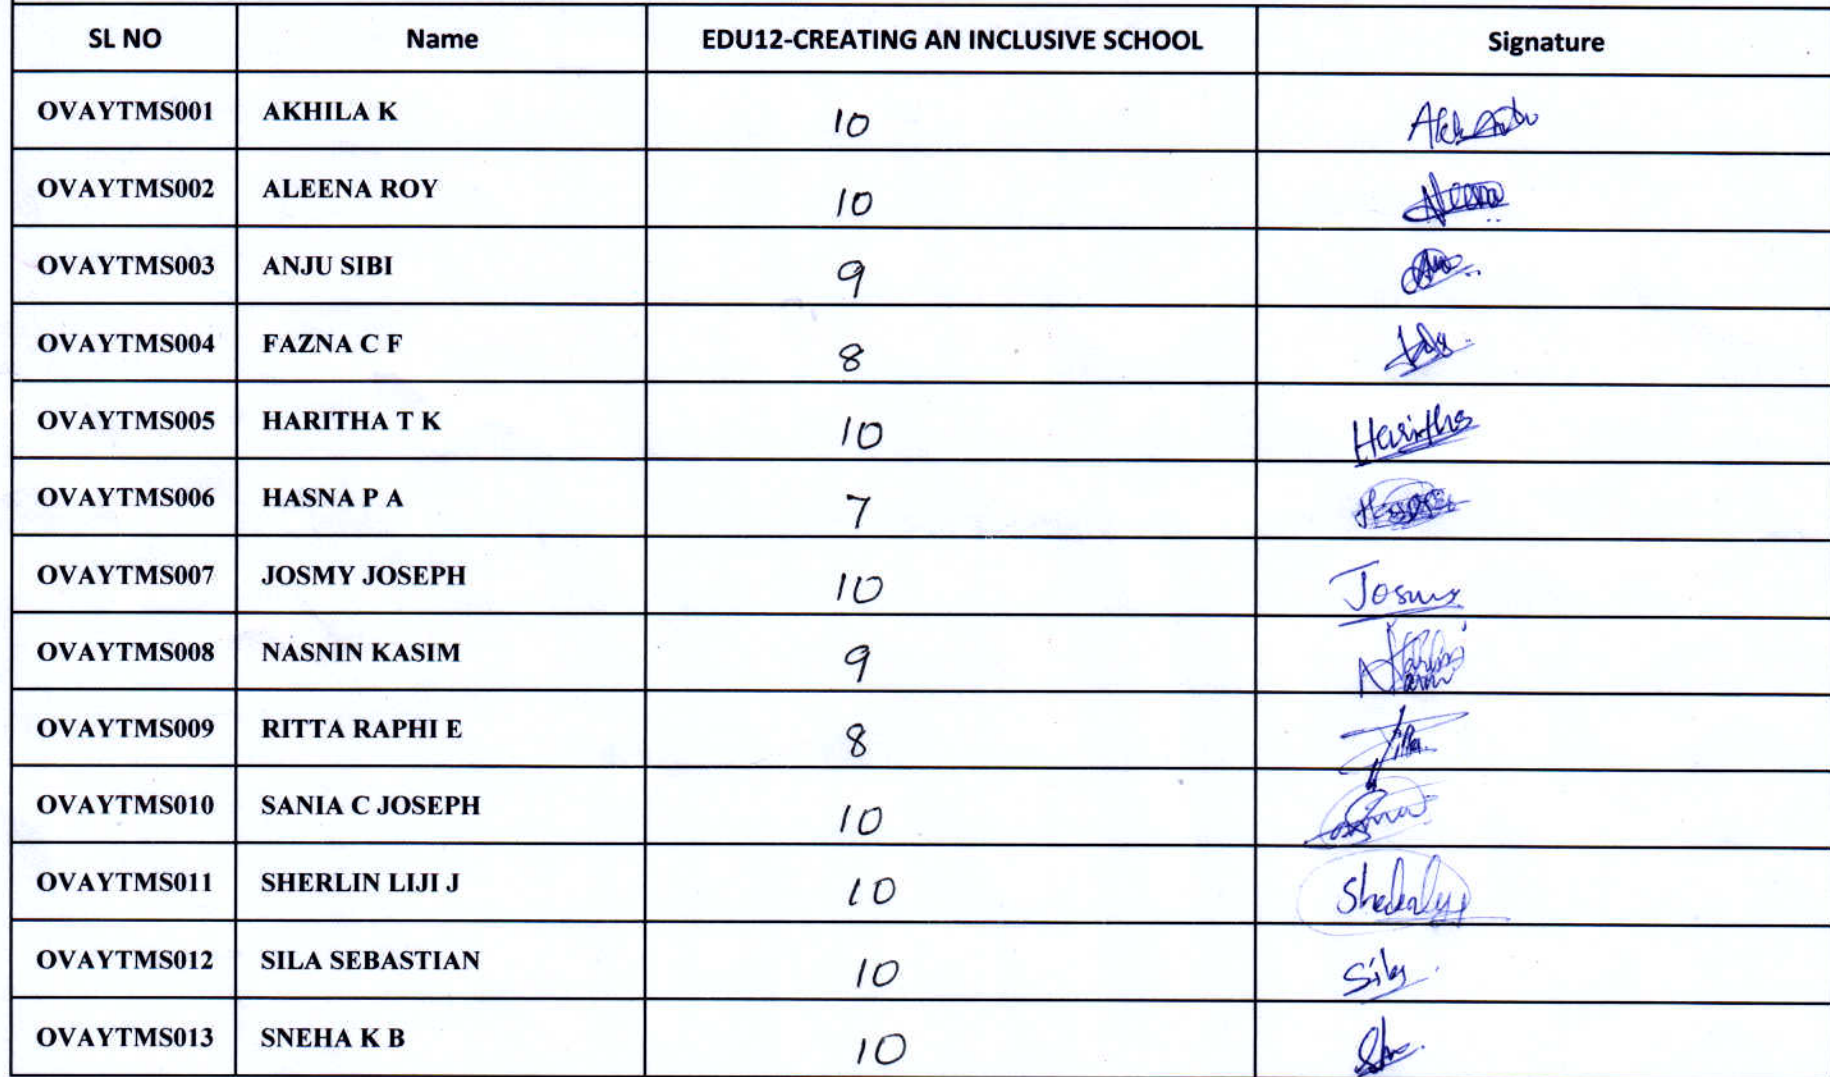 SL NO Name EDU12-CREATING AN INCLUSIVE SCHOOL Signature
OVAYTMS001 AKHILA K 10
OVAYTMS002 ALEENA ROY 10 Aleena
OVAYTMS003 ANJU SIBI 9
OVAYTMS004 FAZNA C F 8
OVAYTMS005 HARITHA T K 10 Haritha
OVAYTMS006 HASNA P A 7
OVAYTMS007 JOSMY JOSEPH 10 Josmy
OVAYTMS008 NASNIN KASIM 9
OVAYTMS009 RITTA RAPHI E 8
OVAYTMS010 SANIA C JOSEPH 10
OVAYTMS011 SHERLIN LIJI J 10
OVAYTMS012 SILA SEBASTIAN 10 Sila
OVAYTMS013 SNEHA K B 10